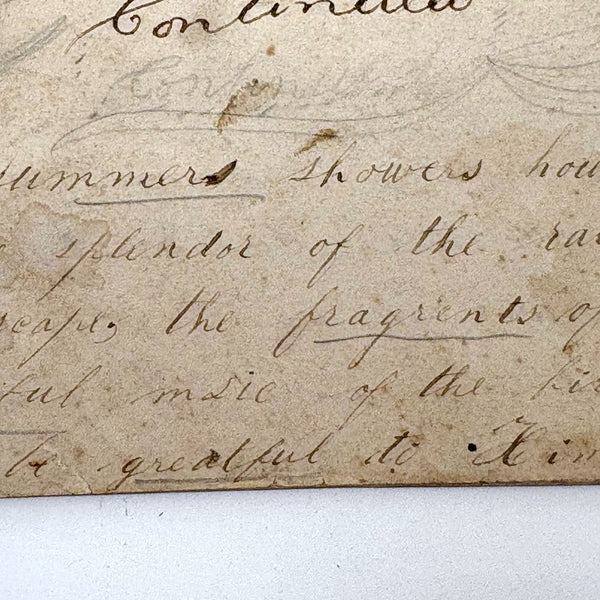 Continued
Continued
summers showers how
splendor of the rai
scape, the fragrents of
ful music of the bir
be greatful to Him